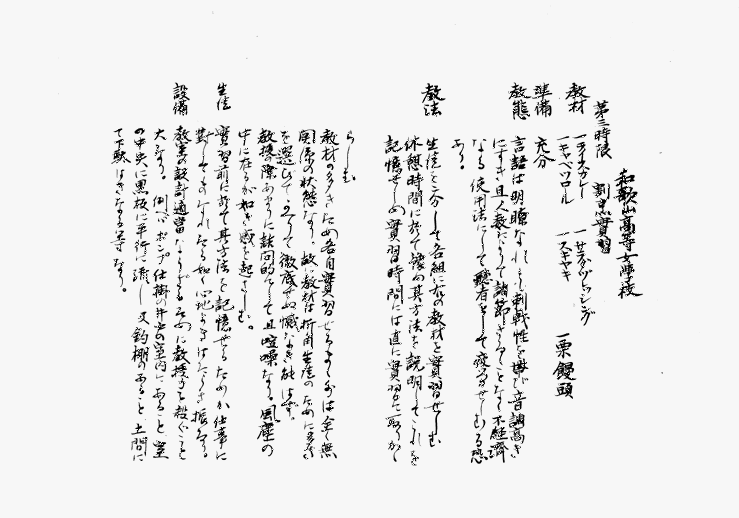 和歌山高等女學校
第三時限 割烹實習
教材 一ライスカレー 一サラダドレッシング 一栗饅頭
一キャベツロール 一スキヤキ
準備 充分
教態 言語は明瞭なれども刺戟性を帯び音調高き
にすぎ且人数によりて調節することなく不経濟
なる使用法にして聽者をして疲労せしむる恐
あり。
教法 生徒を二分して各組に右の教材を實習せしむ
休憩時間に於て豫め其方法を説明してこれを
記憶せしめ實習時間には直に實習に取りかゝ
らしむ
教材の多きため各自實習せるより外は全く無
関係の状態なり。故に教材は折角生徒のために
を選びても りて徹底せぬ憾なき能はず。
教授の際あまりに詰問的にして且喧噪なる風塵の
中に在るが如き感を起さしむ。
生徒 實習前に於て其方法を記憶せるためか仕事に
對してきなれたる如く心地よきはたらき振なり。
設備 教室の設計適當ならざるために教授力を殺ぐこと
大なり。例へばポンプ仕掛の井戸の室内にあること、室
の中央に黒板に平行に流し又釣棚のあること、土間に
て下駄ばきなる等なり。